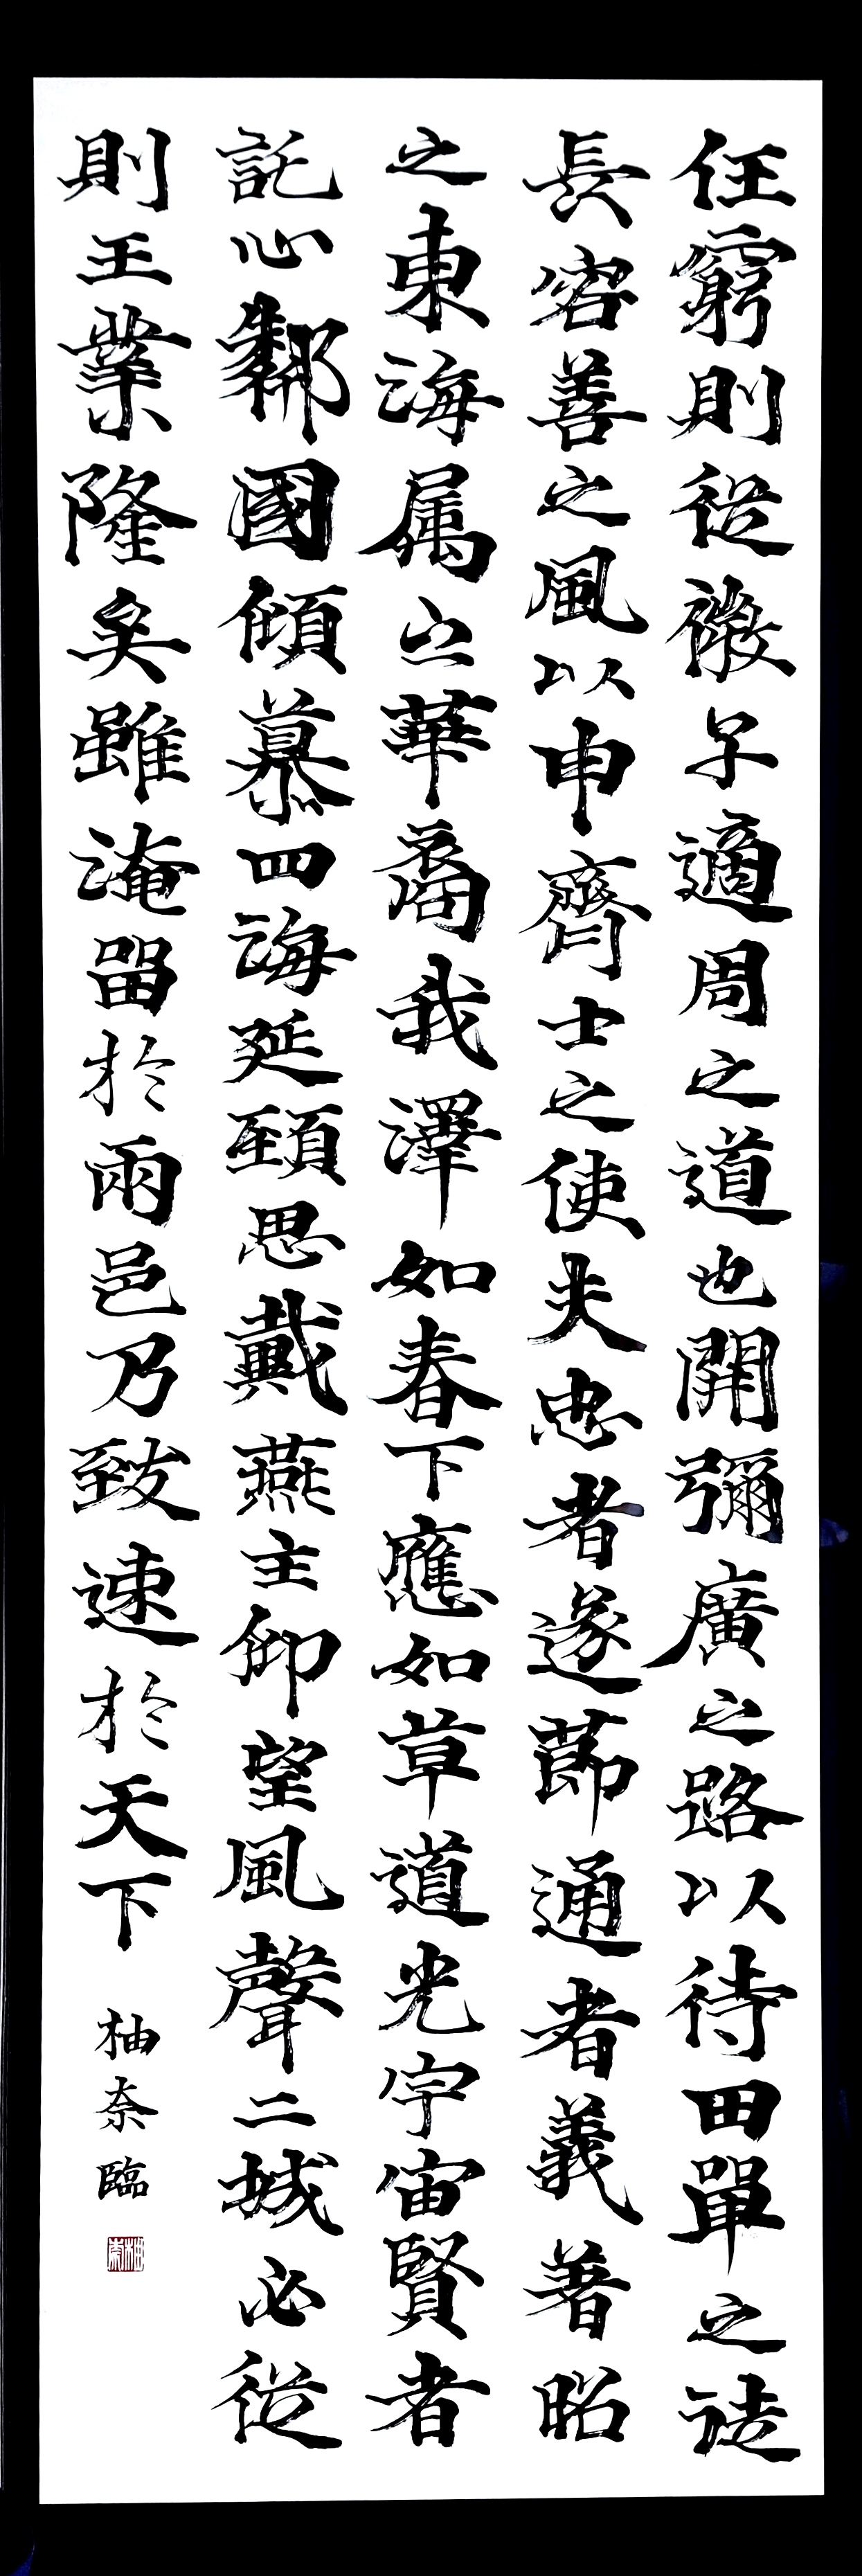 任窮則從微子適周之道也開彌廣之路以待田單之徒
長容善之風以申齊士之使夫忠者遂節通者義著昭
之東海属之華裔我澤如春下應如草道光宇宙賢者
託心鄰國傾慕四海延頸思戴燕主仰望風聲二城必從
則王業隆矣雖淹留於兩邑乃致速於天下
柚奈臨